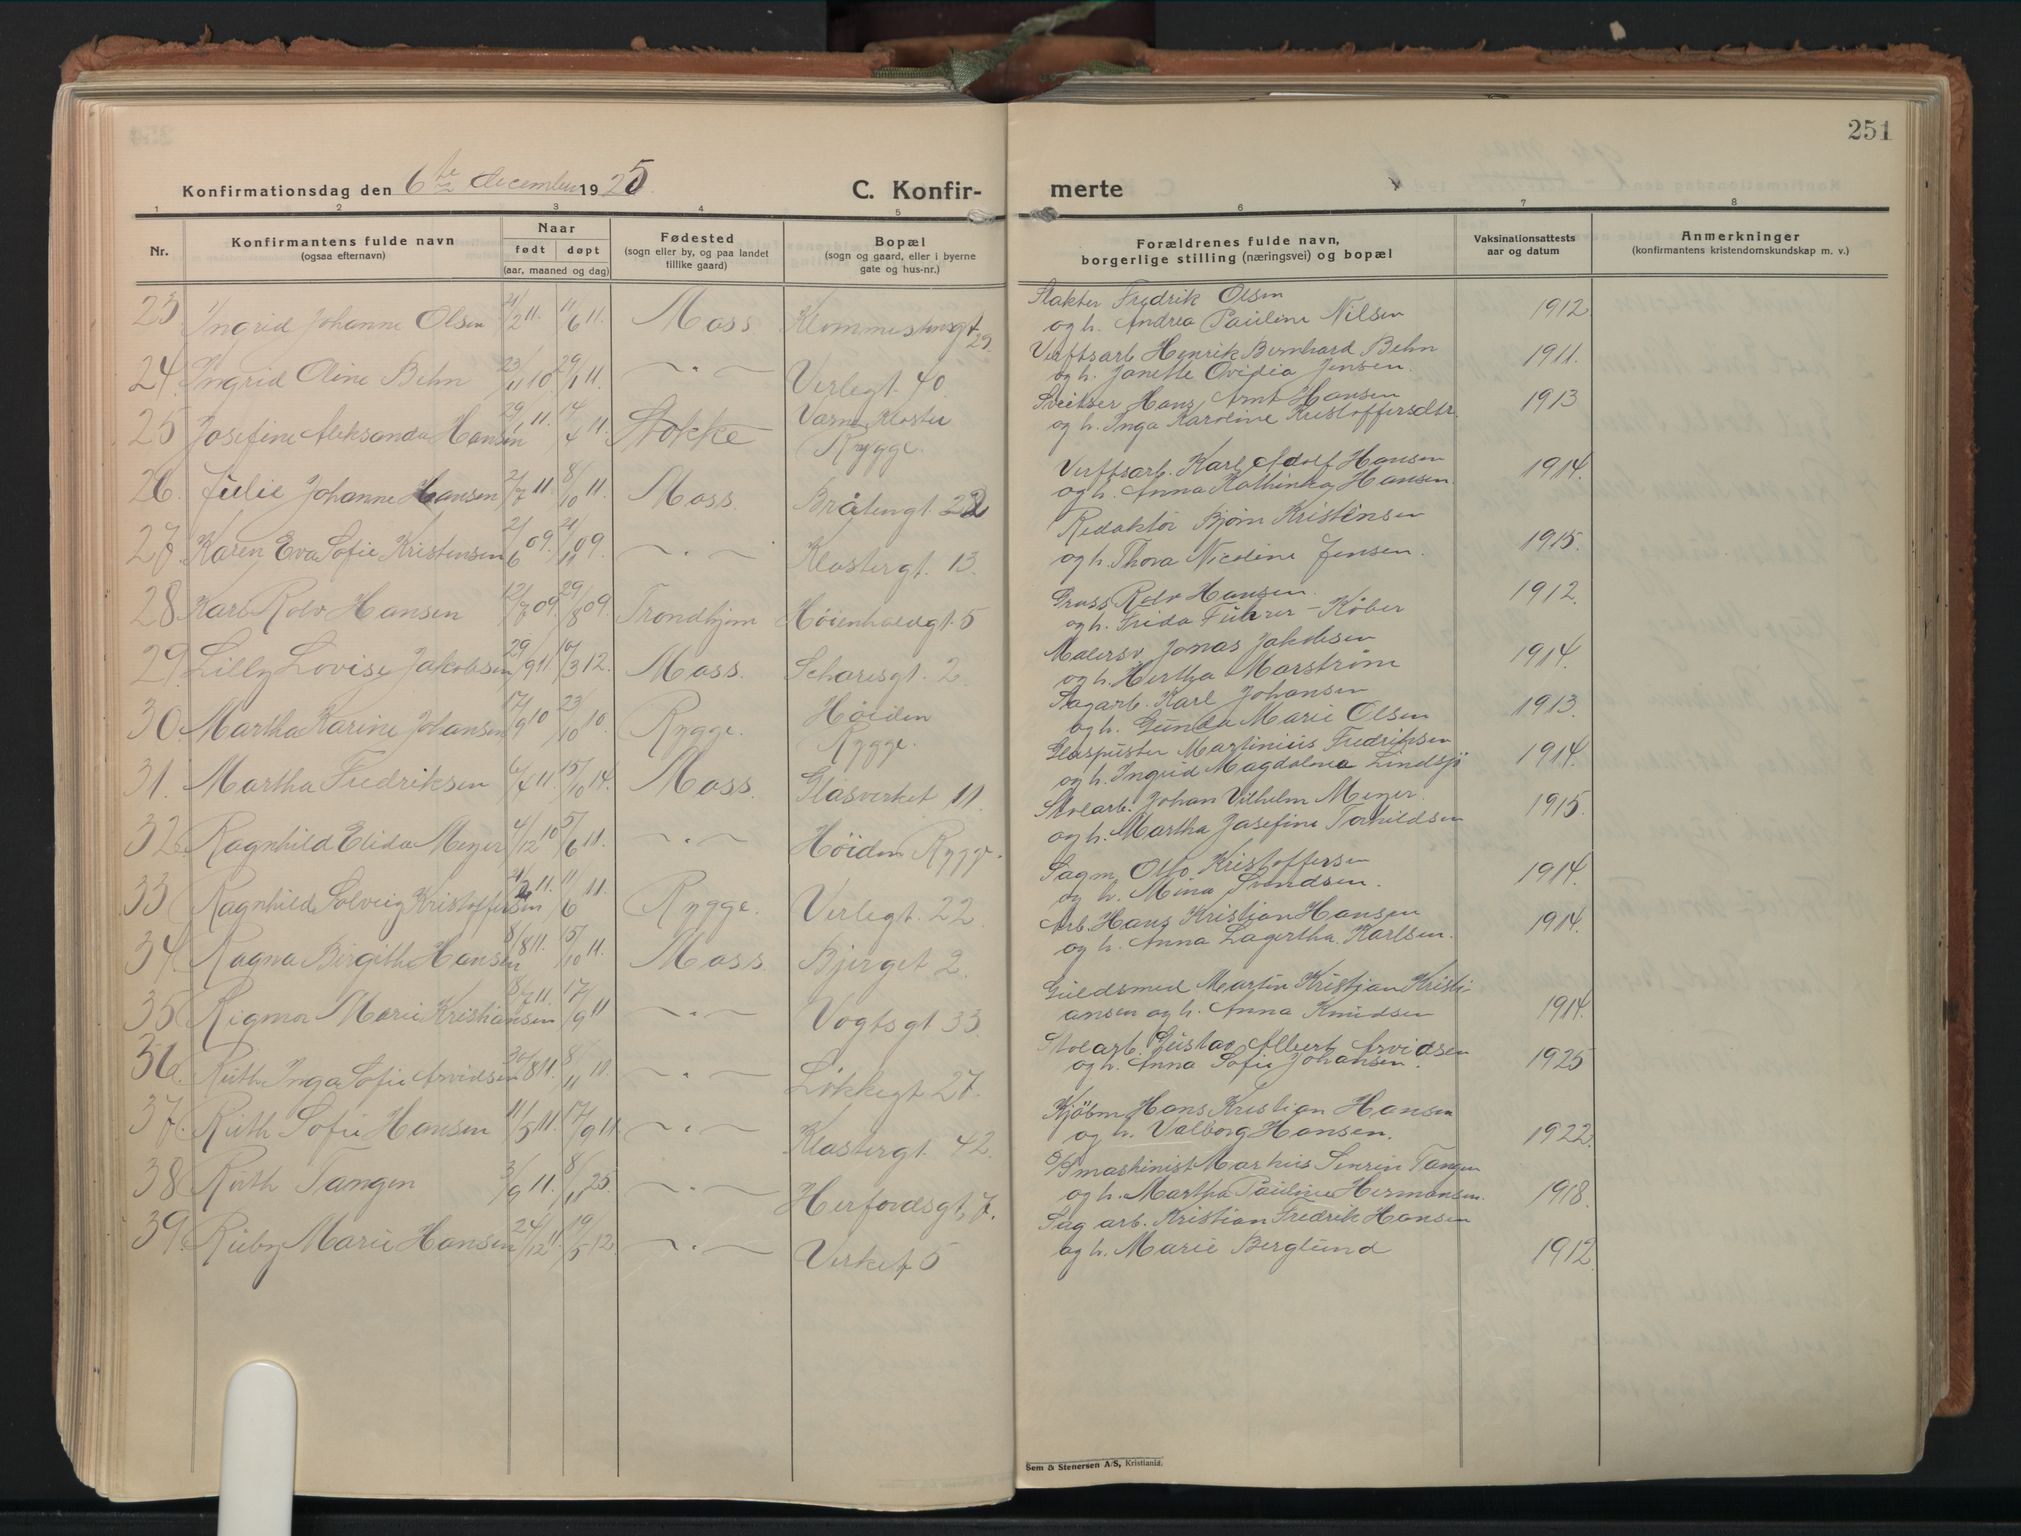 251
Konfirmationsdag den 6te december 1925.
C. Konfir-
merte
1 2 3 4 5 6 7 8
Nr.
Konfirmantens fulde navn
(ogsaa efternavn)
Naar
født døpt
(aar, maaned og dag)
Fødested
(sogn eller by, og paa landet
tillike gaard)
Bopæl
(sogn og gaard, eller i byerne
gate og hus-nr.)
Forældrenes fulde navn,
borgerlige stilling (næringsvei) og bopæl
Vaksinationsattests
aar og datum
Anmerkninger
(konfirmantens kristendomskundskap m. v.)
23 Ingrid Johanne Olsen 21/2 11. 11/6 11. Moss. 29. Slakter Fredrik Olsen
og h. Andrea Pauline Nilsen 1912
24. Ingrid Oline Behn 23/11 10 29/1 11. — " — Verlegt. 40. Verftsarb. Henrik Bernhard Behn
og h. Janette Ovidia Jensen. 1911.
25 Josefine Aleksanda Hansen 29/1 11. 14/4 11. Stokke Varne Kloster
Rygge. Sveitser Hans Arnt Hansen
og h. Inga Karoline Kristoffersdtr. 1913
26. Julie Johanne Hansen 2/7 11. 8/10 11. Moss. Bråtengt. 22 Verftsarb. Karl Adolf Hansen
og h. Anna Kathinka Hansen. 1914.
27. Karen Eva Sofie Kristensen 2/6 09. 21/11 09. — " — Klostergt. 13. Redaktør Bjørn Kristensen
og h. Thora Nicoline Jensen. 1915.
28 Karl Rolv Hansen 12/7 09. 29/8 09. Trondhjem Høienhaldgt. 5 Gross. Rolv Hansen.
og h. Frida Führer-Køber 1912.
29. Lilly Lovise Jakobsen 29/9 11. 10/3 12. Moss. 2. Malersv. Jonas Jakobsen
og h. Hertha Marstrøm 1914.
30. Martha Karine Johansen 17/9 10 23/10 10 Rygge. Høiden
Rygge. Sagarb. Karl Johansen
og h. Gunda Marie Olsen 1913.
31. Martha Fredriksen 6/4 11. 15/10 14. Moss. Glasverket 11. Glaspuster Martinius Fredriksen
og h. Ingrid Magdalena Lindsjö 1914.
32. Ragnhild Elida Meyer 4/12 10 5/6 11. — " — Høiden Rygge. Stolarb. Johan Vilhelm Meyer.
og h. Martha Josefine Torkildsen 1915.
33 Ragnhild Solveig Kristoffersen 21/2 11. 11/6 11. Rygge. Verlegt. 22 Sagm. Otto Kristoffersen
og h. Mina Svendsen. 1914.
34. Ragna Birgithe Hansen 8/8 11. 15/10 11. Moss. Bjerget 2. Arb. Hans Kristian Hansen
og h. Anna Lagertha Karlsen. 1914.
35. Rigmor Marie Kristiansen 8/7 11. 17/9 11 — " — Vogtsgt. 33. Guldsmed Martin Kristian Kristi-
ansen og h. Anna Knudsen 1914.
36. Ruth Inga Sofie Arvidsen 30/8 11. 8/11 11. — " — Løkkegt. 27. Stolarb. Gustav Albert Arvidsen
og h. Anna Sofie Johansen. 1925
37. Ruth Sofie Hansen 11/5 11. 17/9 11. — " — Klostergt. 42. Kjöbm. Hans Kristian Hansen
og h. Valborg Hansen. 1922.
38 Ruth Tangen 3/9 11. 8/11 25. — " — Herfordsgt. 7. Tangen
og h. Martha Pauline Hermansen. 1918.
39. Ruby Marie Hansen 24/12 11. 19/5 12. — " — Verket 5 Sag arb. Kristian Fredrik Hansen
og h. Marie Berglund 1912.
Sem & Stenersen A/S, Kristiania.